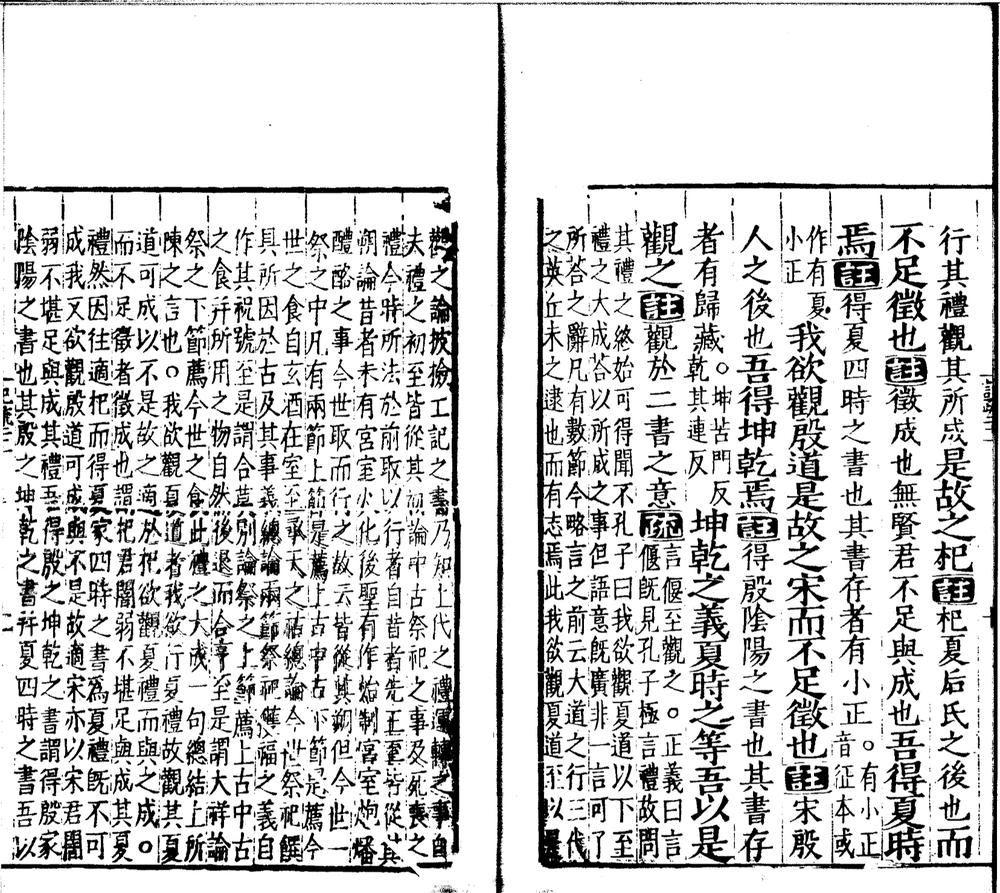 行其禮觀其所成是故之杞註杞夏后氏之後也而
不足徵也註徵成也無賢君不足與成也吾得夏時
焉註得夏四時之書也其書存者有小正。有小正音征本或
作有夏小正我欲觀殷道是故之宋而不足徵也註宋殷
人之後也吾得坤乾焉註得殷陰陽之書也其書存
者有歸藏。坤苦門反乾其連反坤乾之義夏時之等吾以是
觀之註觀於二書之意疏言偃至觀之。正義曰言偃既見孔孔子極言禮故問
其禮之終始可得聞不孔子曰我欲觀夏道以下至
禮之大成荅以所成之事但語意既廣非一言可了
所荅之辭凡有數節今略言之前云大道之行三代
之英丘未之逮也而有志焉此我欲觀夏道至以
觀之論披撿工記之書乃知上代之禮運轉之事自
夫禮之初至皆從其初論中古祭祀之事及死喪之
禮今時所法於前取以行者自昔者先王至皆從其
朔論昔者未有宮室火化後聖有作始制宮室炮燔
醴酪之事今世取而行之故云皆從其朔但今世一
祭之中凡有兩節上節是薦上古中古下節是薦今
世之食自玄酒在室至承天之祜總論今世祭祀饌
具所因於古及其事義總論兩節祭祀獲福之義自
作其祝號至是謂合莫別論祭之上節薦上古中古
之食幷所用之物自然後退而合亨至是謂大祥論
祭之下節薦今世之食此禮之大成一句總結上所
陳之言也。我欲觀夏道者我欲行夏禮故觀其夏
道可成以不是故之適於杞欲觀夏禮而與之成。
而不足徵者徵成也謂杞君闇弱不堪足與成其夏
禮然因往適杞而得夏家四時之書焉夏禮既不可
成我又欲觀殷道可成與不是故適宋亦以宋君闇
弱不堪足與成其禮吾得殷之坤乾之書謂得殷家
陰陽之書也其殷之坤乾之書幷夏四時之書吾以